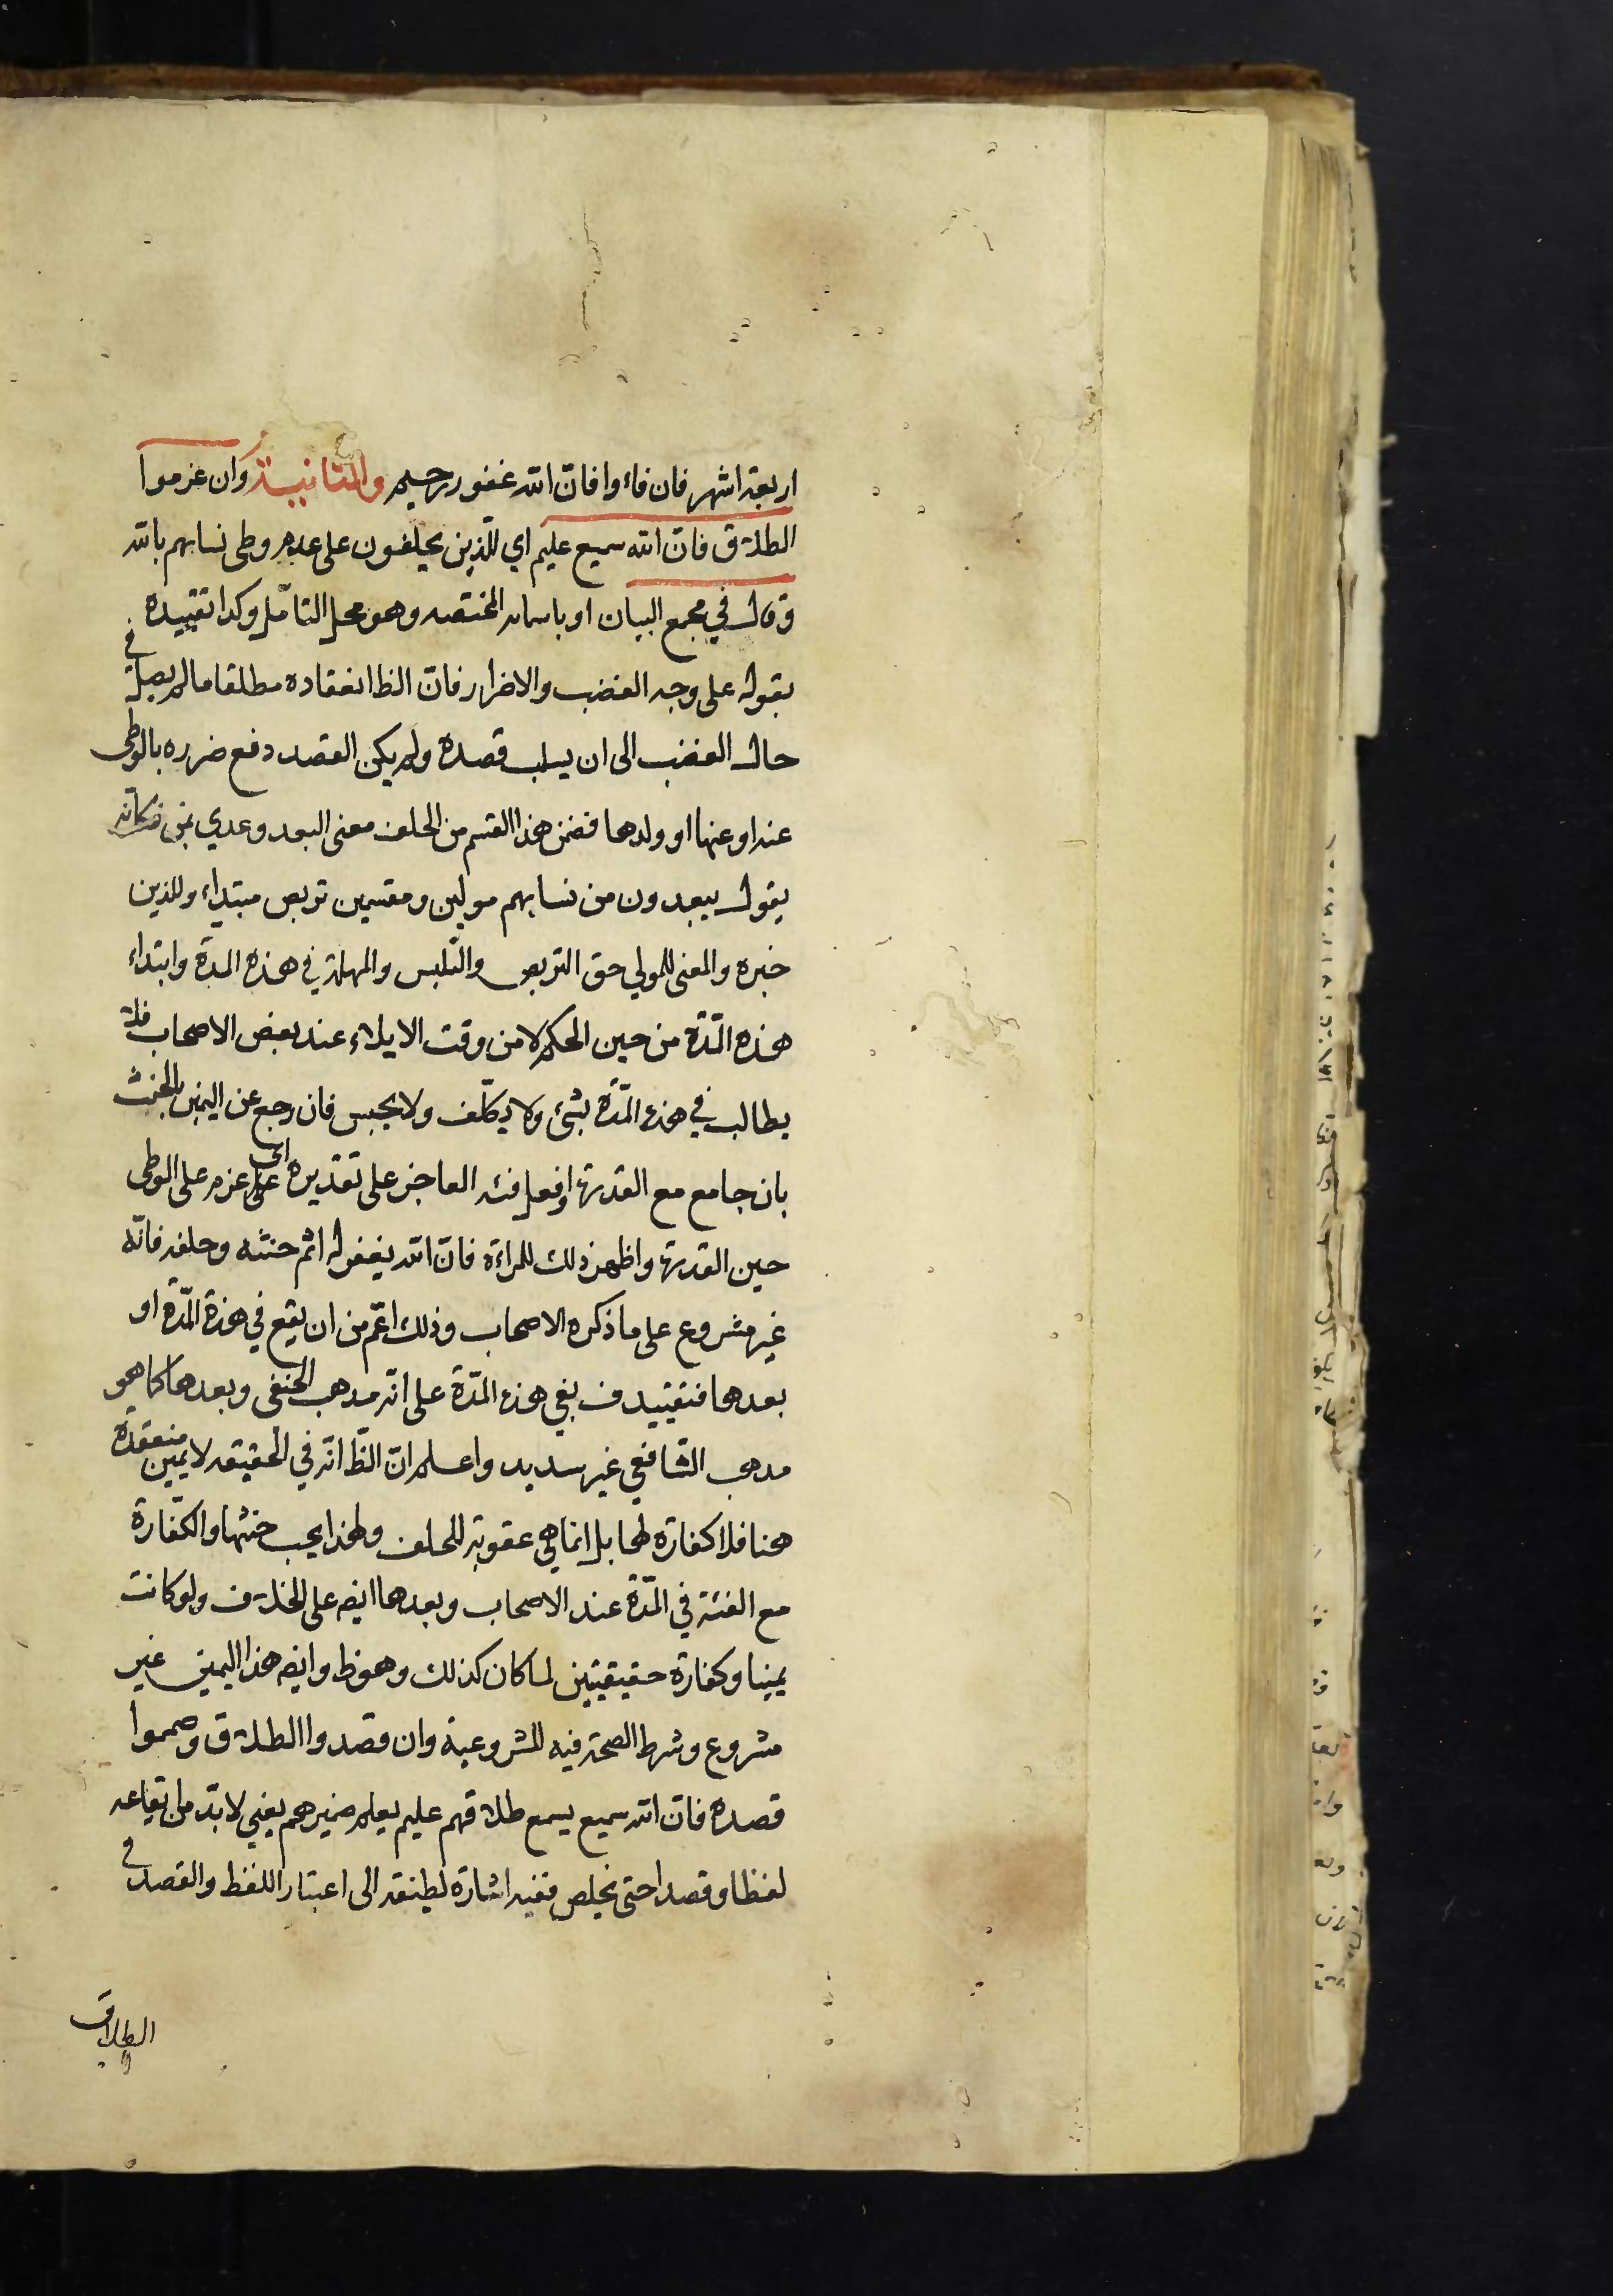 اربعة اشهر فان فاءوا فانّ الله غفور رحيم والثانية وان عزموا
الطلاق فانّ الله سميع عليم اي للّذين يحلفون على عدم وطى نسابهم بالله
وقال في مجمع البيان او باسمائه المختصه وهو محل التامّل وكدا تقييده
بقوله على وجه الغضب والاضرار فانّ الظا انعقاده مطلقا مالم يصل في
حال الغضب الى ان يسلب قصده ولم يكن القصد دفع ضرره بالوطى
عنه او عنها او ولدها فضمن هذا القسم من الحلف معنى البعد وعدي بمن فكانه
يقول يبعدون من نسابهم مولين ومقسمين تربص مبتداء وللذين
خبره والمعنى للمولي حق التربص والتلبس والمهلة في هذه المدة وابتداء
هذه المّدة من حين الحكم لا من وقت الايلاء عند بعض الاصحاب فلا
يطالب في هذه المّدة بشئ ولا يكلّف ولا يحبس فان رجع عن اليمين بالحنث
بان جامع مع القدرة او فعل فئه العاجز على تقديره اى على عزم على الوطى
حين القدرة واظهر ذلك للمراءة فانّ الله يغفر له اثم حنثه وحلفه فانّه
غير مشروع على ما ذكره الاصحاب وذلك اعّم من ان يقع في هذة المّدة او
بعدها فتقييد ف بفي هذه المّدة على انّه مدهب الحنفى وبعدها كما هو
مدهب الشافعي غير سديد واعلم انّ الظّا انّه في الحقيقه لا يمين منعقدة
هنا فلا كفارة لها بل انما هي عقوبة للحلف ولهذا يجب حنثها والكفّارة
مع الفئة في المّدة عند الاصحاب وبعدها ايضه على الخلاف ولو كانت
يمينا وكفارة حقيقيتين لما كان كذلك وهو ظ وايضه هذا اليمين غير
مشروع وشرط الصحة فيه المشروعية وان قصدوا الطلاق وصمموا
قصده فانّ الله سميع يسمع طلاقهم عليم يعلم ضميرهم يعني لابدّ من ايقاعه
لفظا وقصدا حتى يخلص ففيه اشارة لطيفه الى اعتبار اللفظ والقصد في
الطلاق